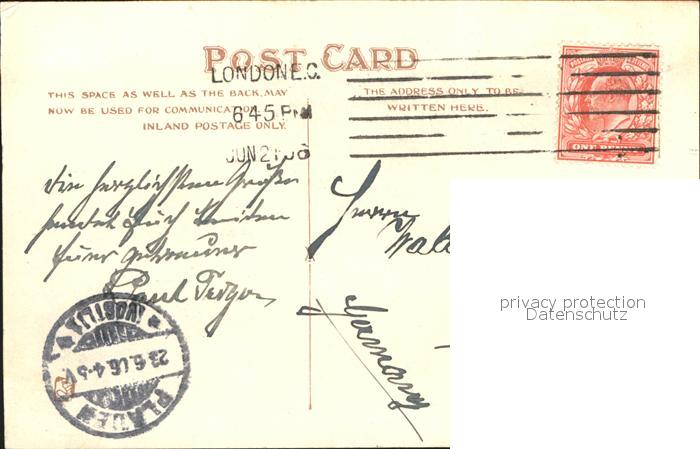 POST CARD
LONDON E.C.
THIS SPACE AS WELL AS THE BACK, MAY
NOW BE USED FOR COMMUNICATION
INLAND POSTAGE ONLY.
6 45 PM
JUN 21 06
THE ADDRESS ONLY TO BE
WRITTEN HERE.
ONE PENNY
Die herzlichsten Grüße
sendet Euch beiden
Euer
Paul
Herrn
Germany
PLAUEN
23.6.06.4-5V.
(VOGTL)
privacy protection
Datenschutz